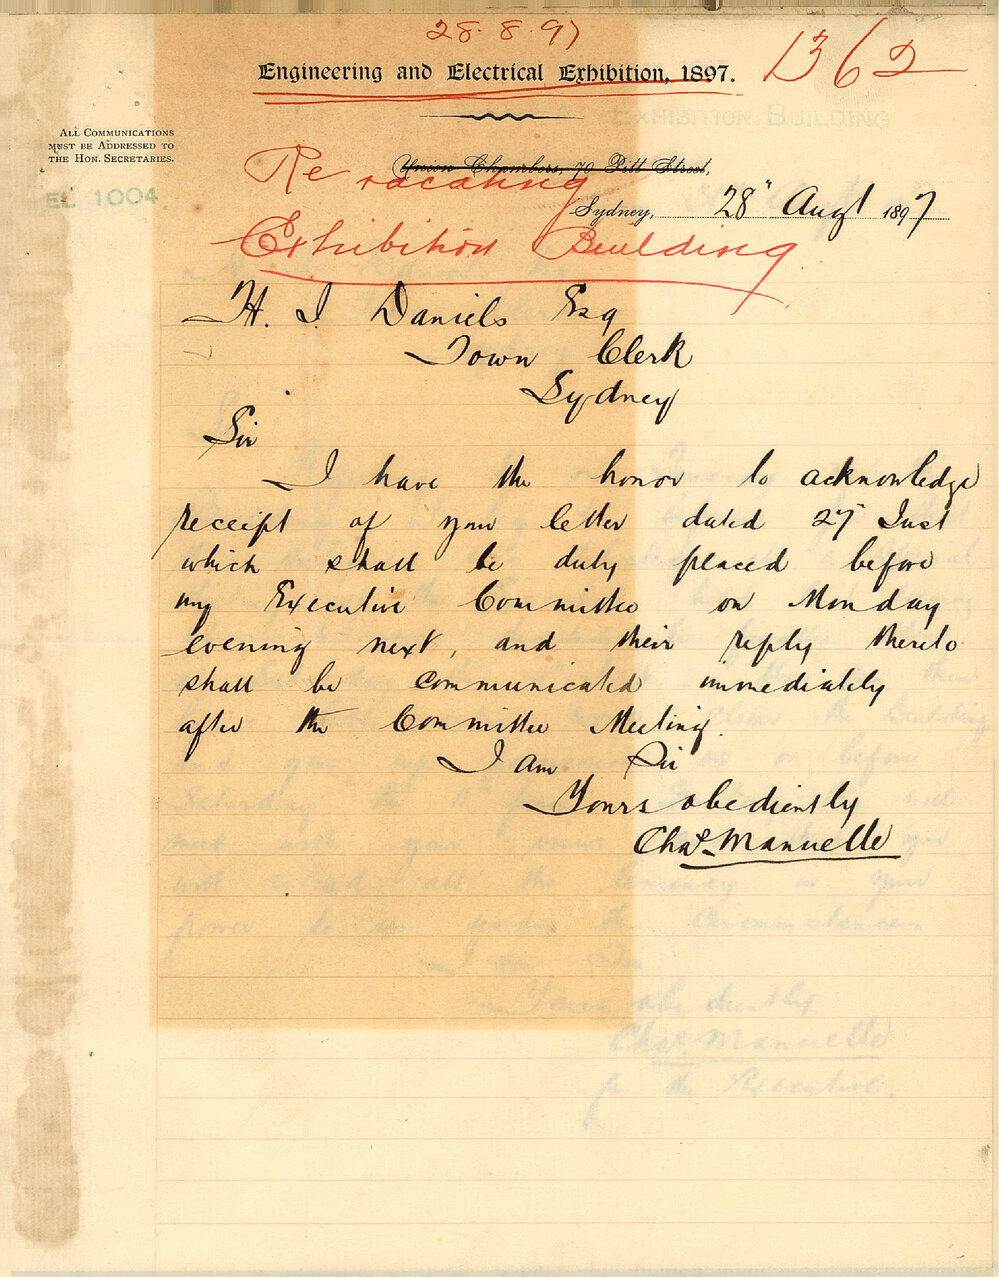 28.8.97
1362
Engineering and Electrical Exhibition, 1897.
EXHIBITION BUILDING
ALL COMMUNICATIONS
MUST BE ADDRESSED TO
THE HON. SECRETARIES.
EL 1004
Union Chambers, 70 Pitt Street,
Re vacating
Sydney, 28" Augt 1897
Exhibition Building
H. I. Daniels Esq
Town Clerk
Sydney
Sir
I have the honor to acknowledge
receipt of your letter dated 27" Inst
which shall be duly placed before
my Executive Committee on Monday
evening next, and their reply thereto
shall be communicated immediately
after the Committee Meeting.
I am Sir
Yours obediently
Chas. Manuelle